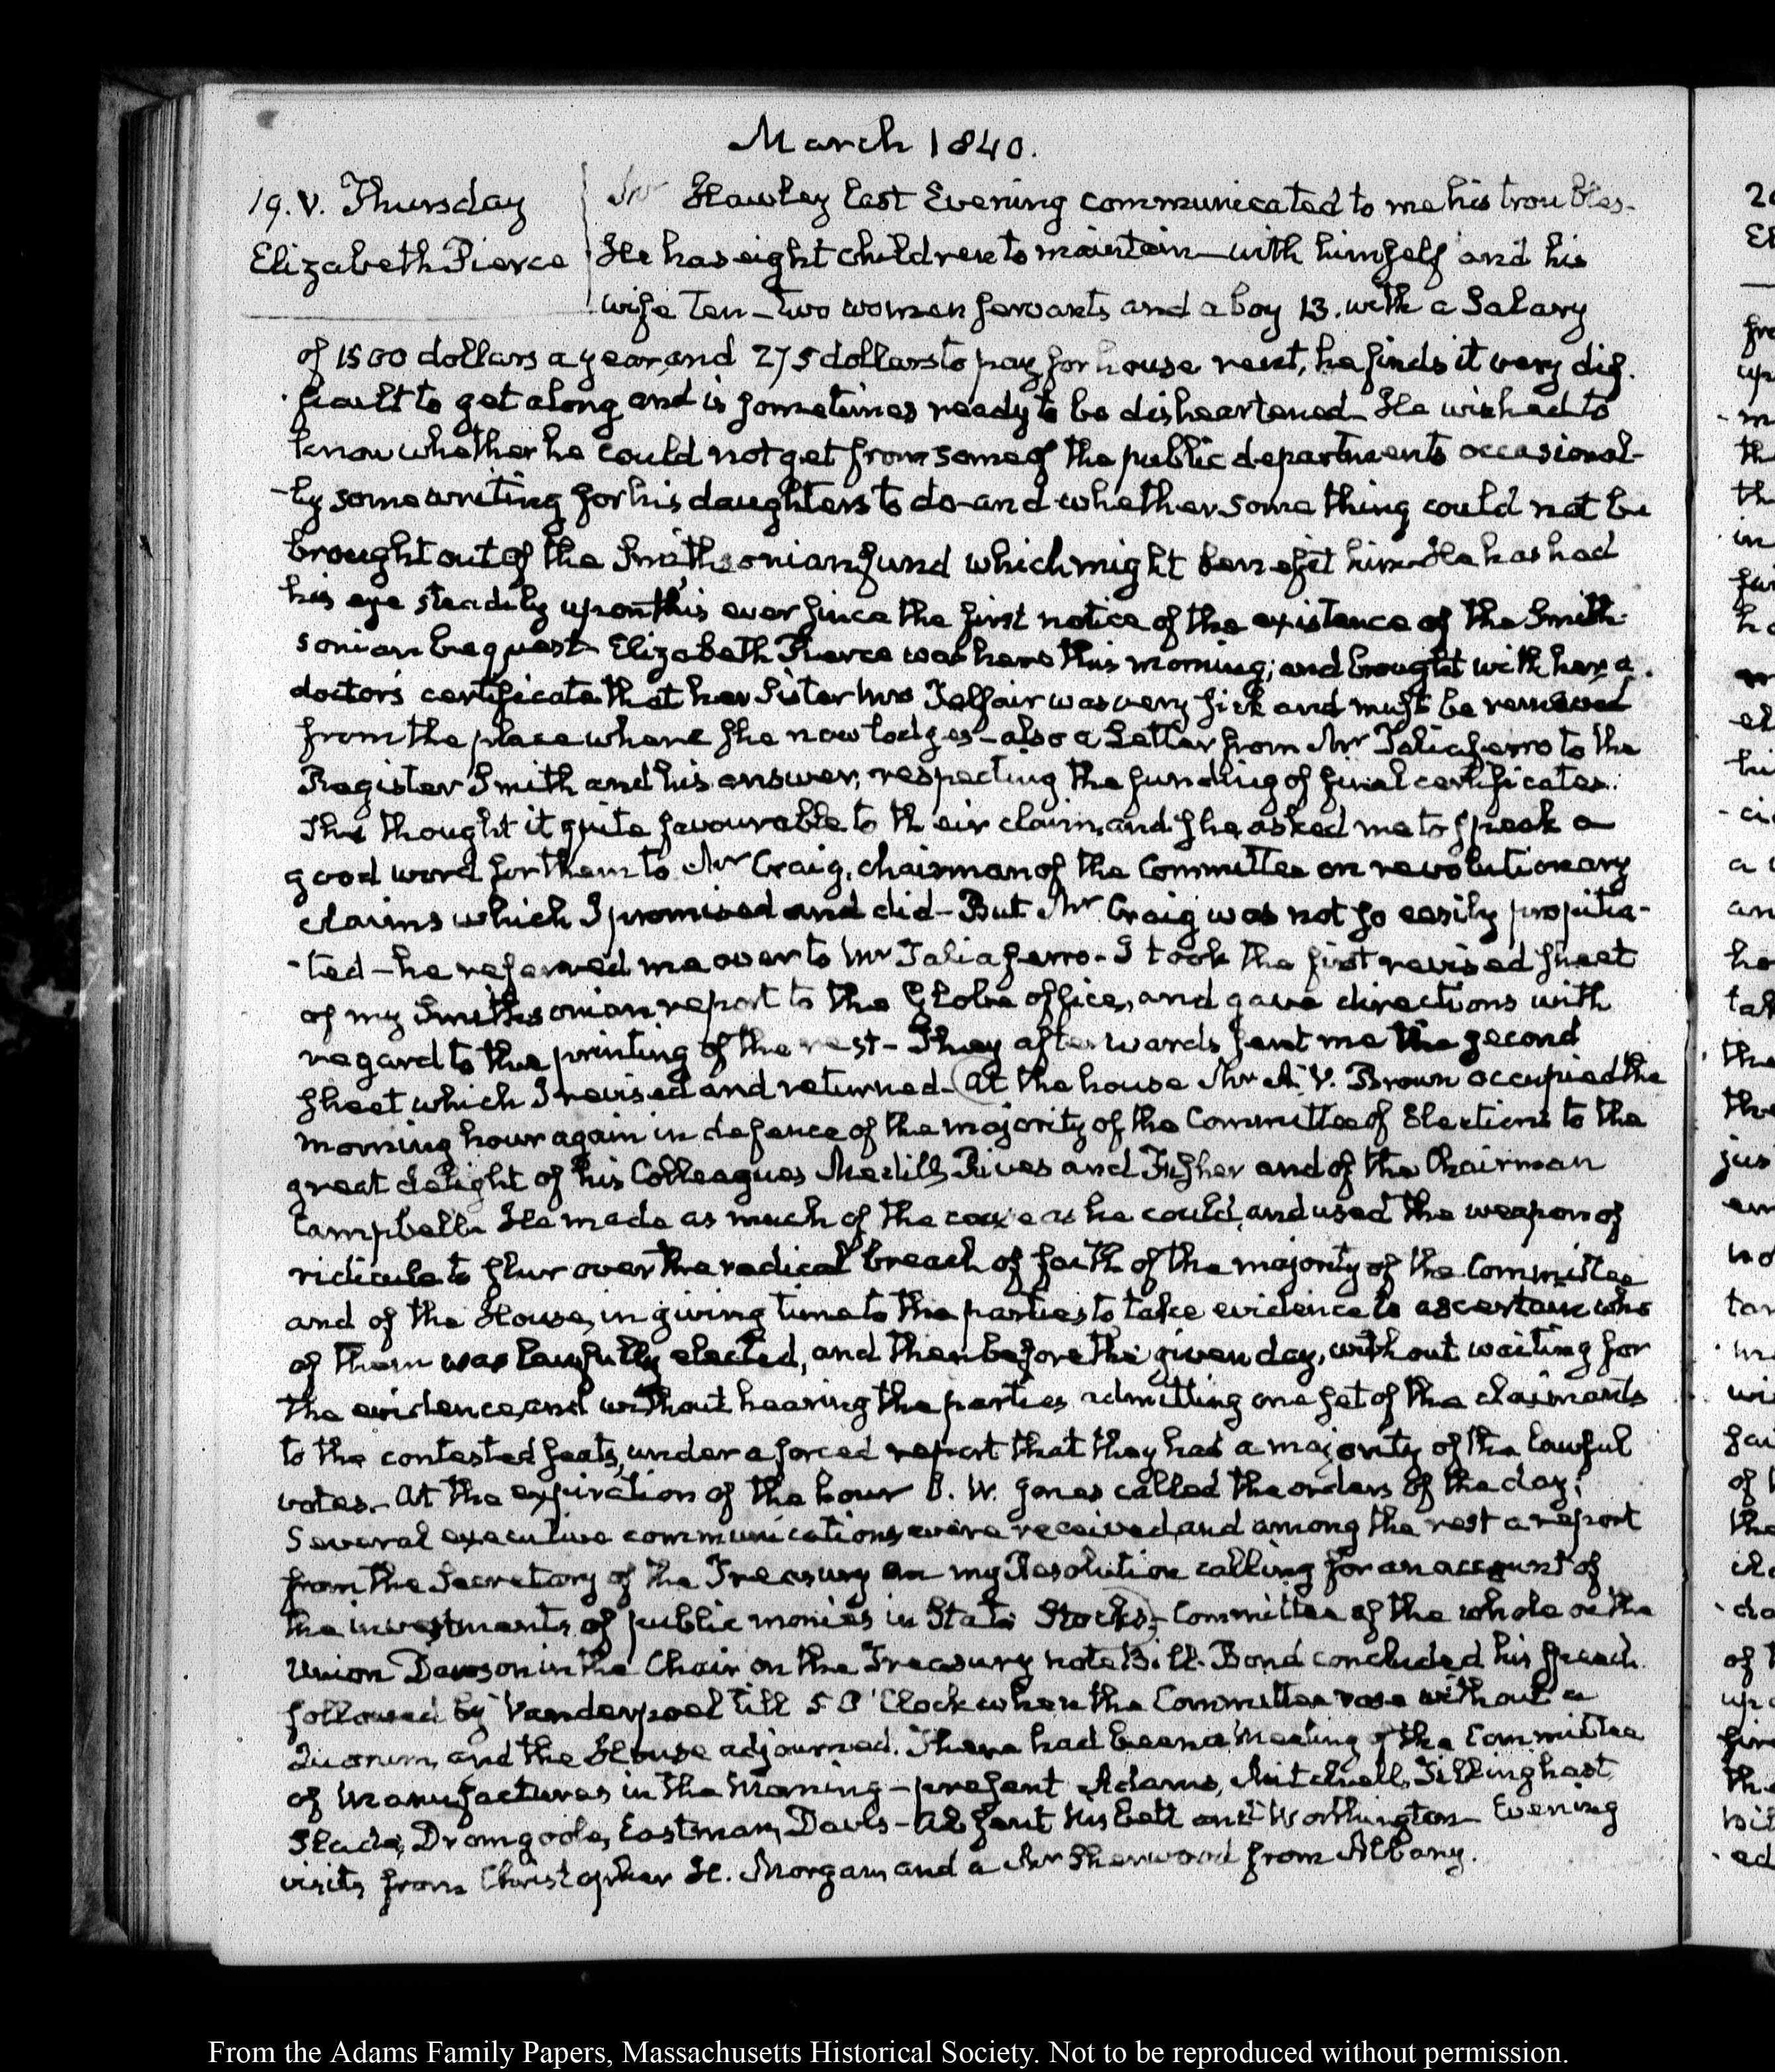 March 1840.
19. V. Thursday
Elizabeth Pierce
Mr Hawley last Evening communicated to me his troubles.
He has eight children to maintain — with himself and his
wife ten — two women servants and a boy 13. with a Salary
of 1500 dollars a year, and 275 dollars to pay for house rent, he finds it very dif-
-ficult to get along and is sometimes ready to be disheartened — He wished to
know whether he could not get from some of the public departments occasional-
-ly some writing for his daughters to do — and whether some thing could not be
brought out of the Smithsonian fund which might benefit him — He has had
his eye steadily upon this ever since the first notice of the existence of the Smith-
sonian bequest — Elizabeth Pierce was here this morning; and brought with her a
doctor's certificate that her Sister Mrs Telfair was very sick and must be removed
from the place where she now lodges — also a Letter from Mr Taliaferro to the
Register Smith and his answer, respecting the funding of final certificates.
She thought it quite favourable to their claim, and she asked me to speak a
good word for them to Mr Craig, chairman of the Committee on revolutionary
claims which I promised and did — But Mr Craig was not so easily propitia-
-ted — he referred me over to Mr Taliaferro — I took the first revised sheet
of my Smithsonian report to the Globe office, and gave directions with
regard to the printing of the rest — They afterwards sent me the second
sheet which I revised and returned — At the house Mr A. V. Brown occupied the
morning hour again in defence of the majority of the Committee of Elections to the
great delight of his Colleagues Medill, Rives and Fisher and of the Chairman
Campbell. He made as much of the case as he could, and used the weapon of
ridicule to slur over the radical breach of faith of the majority of the Committee
and of the House, in giving time to the parties to take evidence to ascertain who
of them was lawfully elected, and then before the given day, without waiting for
the evidence, and without hearing the parties admitting one set of the claimants
to the contested seats, under a forced report that they had a majority of the lawful
votes. — At the expiration of the hour J. W. Jones called the orders of the day;
Several executive communications were received, and among the rest a report
from the Secretary of the Treasury on my Resolution calling for an account of
the investments of public monies in State Stocks, — Committee of the whole on the
Union Dawson in the Chair on the Treasury note Bill. Bond concluded his speech
followed by Vanderpoel till 5 O'Clock when the Committee rose without a
Quorum, and the House adjourned. There had been a Meeting of the Committee
of Manufactures in the Morning — present Adams, Mitchell, Tillinghast
Slade, Dromgoole, Eastman, Davis — Absent Nisbett and Worthington — Evening
visits from Christopher H. Morgan, and a Mr Sherwood from Albany.
From the Adams Family Papers, Massachusetts Historical Society. Not to be reproduced without permission.